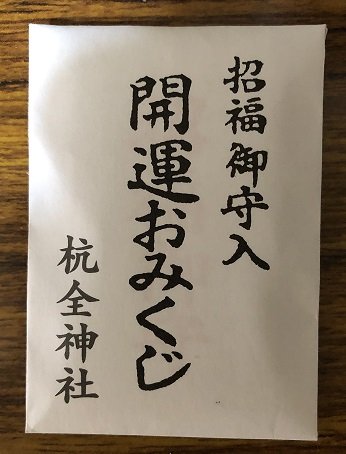 招福御守入
開運おみくじ
杭全神社